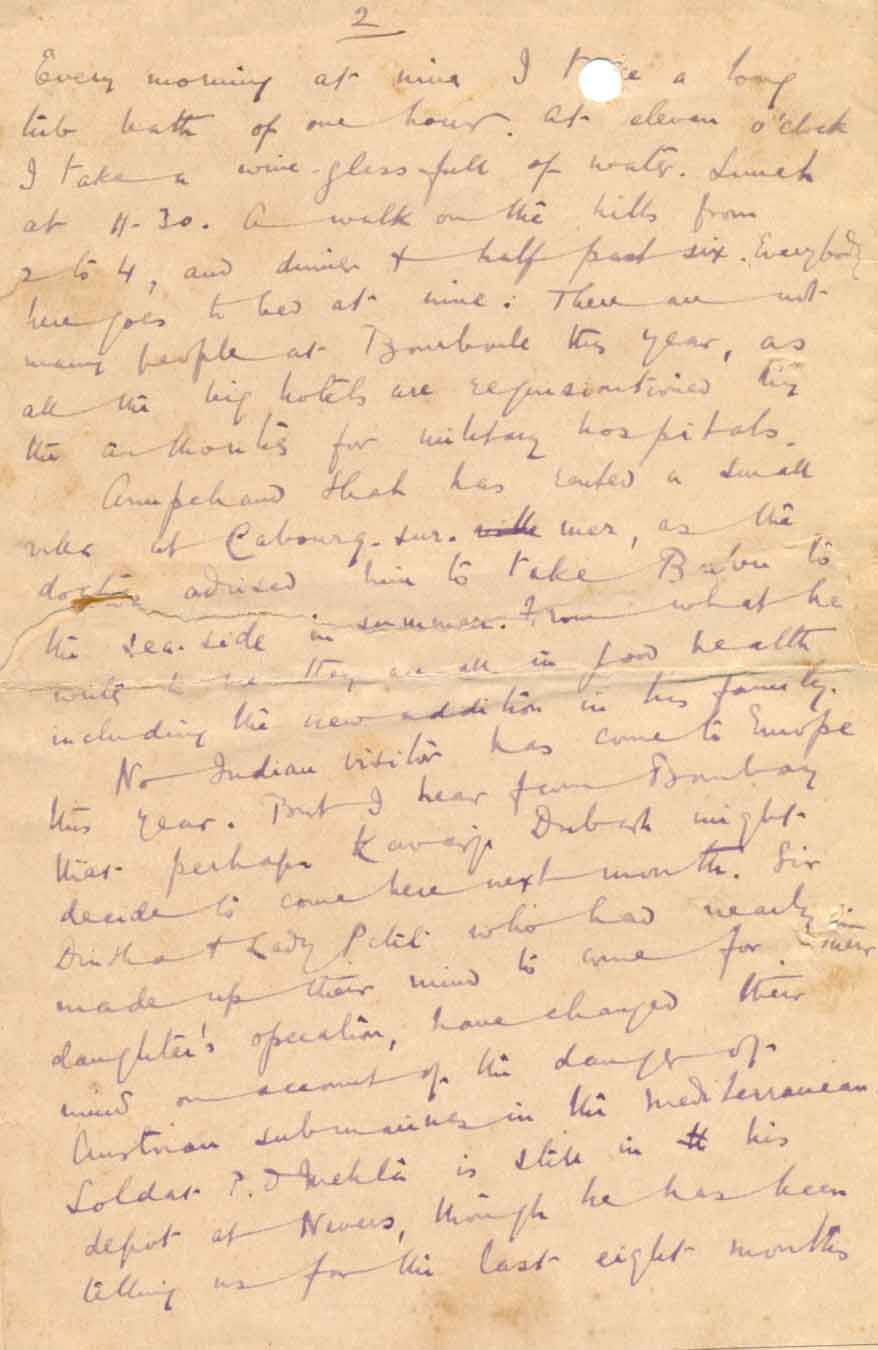 2
Every morning at nine I t e a long
tub bath of one hour. At eleven o'clock
I take a wine-glass-full of water. Lunch
at 11-30. A walk on the hills from
2 to 4, and dinner half past six. Everybody
here goes to bed at nine. There are not
many people at Bourboule this year, as
all the big hotels are requisitioned by
the authorities for military hospitals.
Anupchand Shah has rented a small
villa at Cabourg-sur- mer, as the
doctor advised him to take Babu to
the sea-side in summer. From what he
writes to me they are all in good health
including the new addition in his family.
No Indian visitor has come to Europe
this year. But I hear from Bombay
that perhaps Kavasji Dubash might
decide to come here next month. Sir
Dinsha + Lady Petit who had nearly
made up their mind to come for their
daughter's operation, have changed their
mind on account of the danger of
Austrian submarines in the Mediterranean.
Soldat P. D Mehta is still in his
depot at Nevers, though he has been
telling us for the last eight months